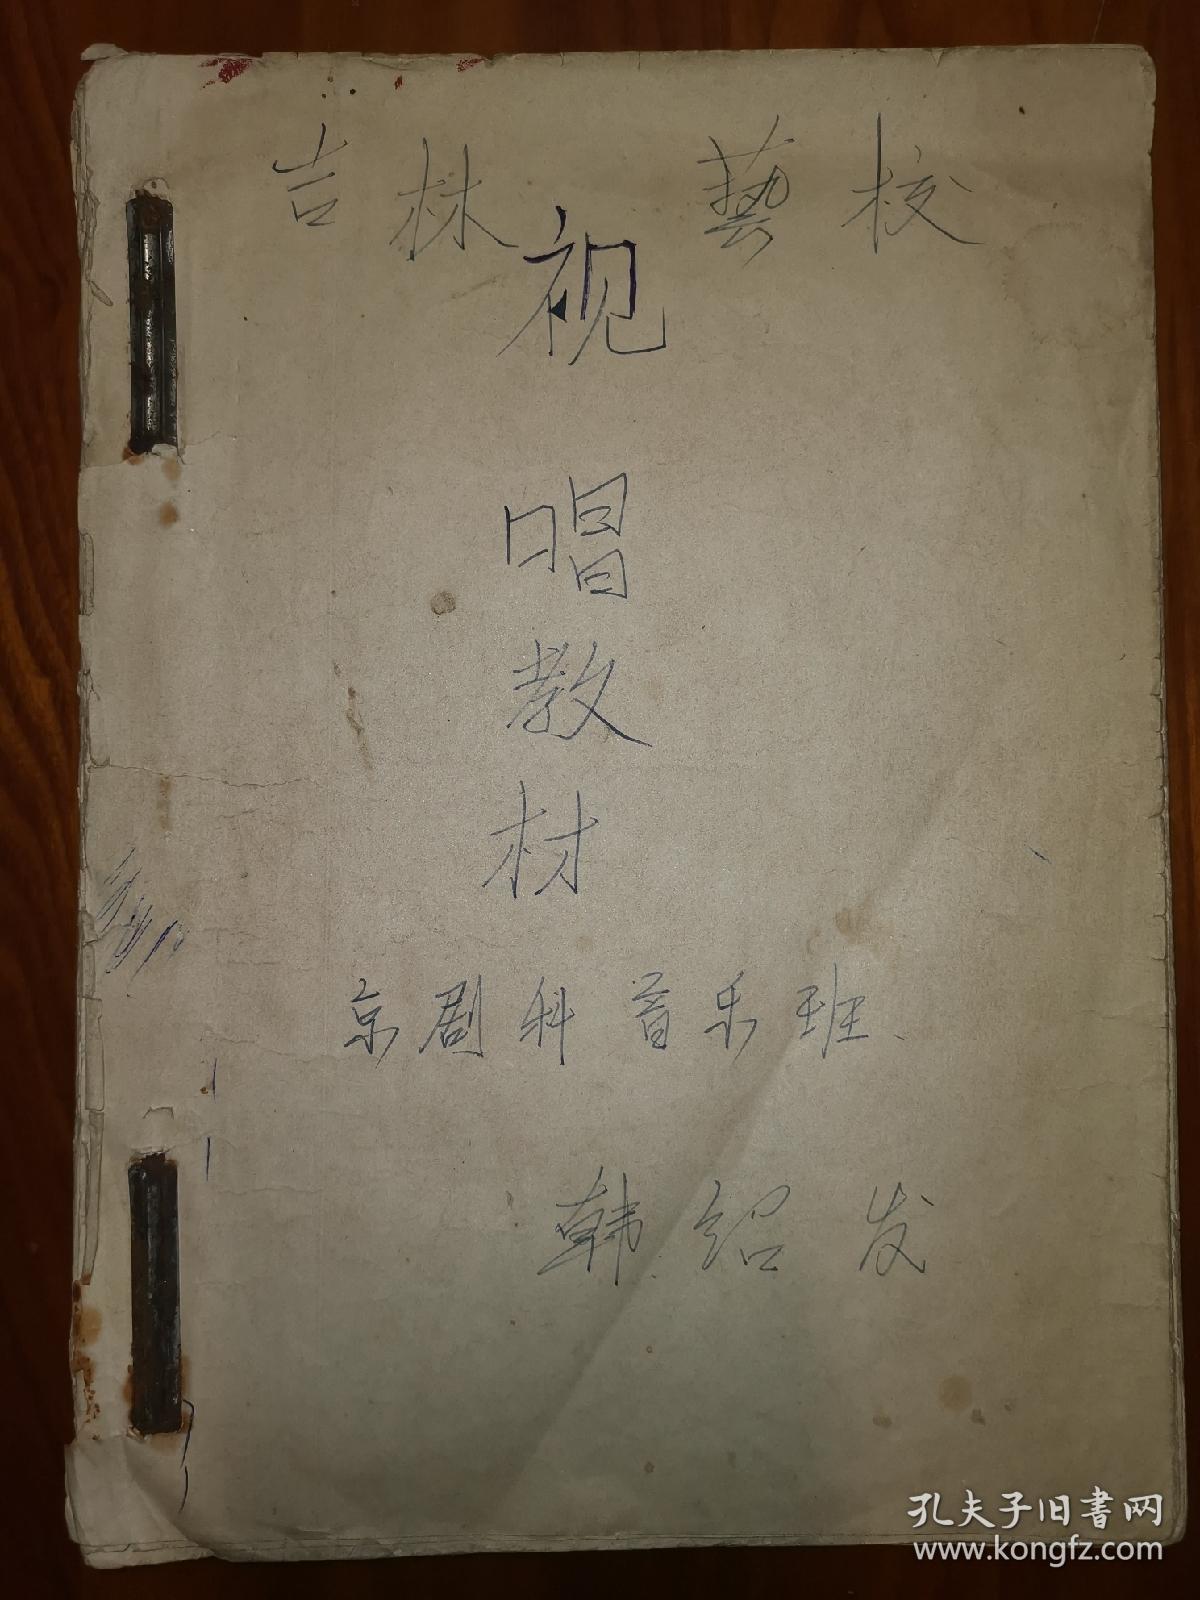 吉林 藝校
视
唱
教
材
京剧科音乐班
韩绍发
孔夫子旧書网
www.kongfz.com